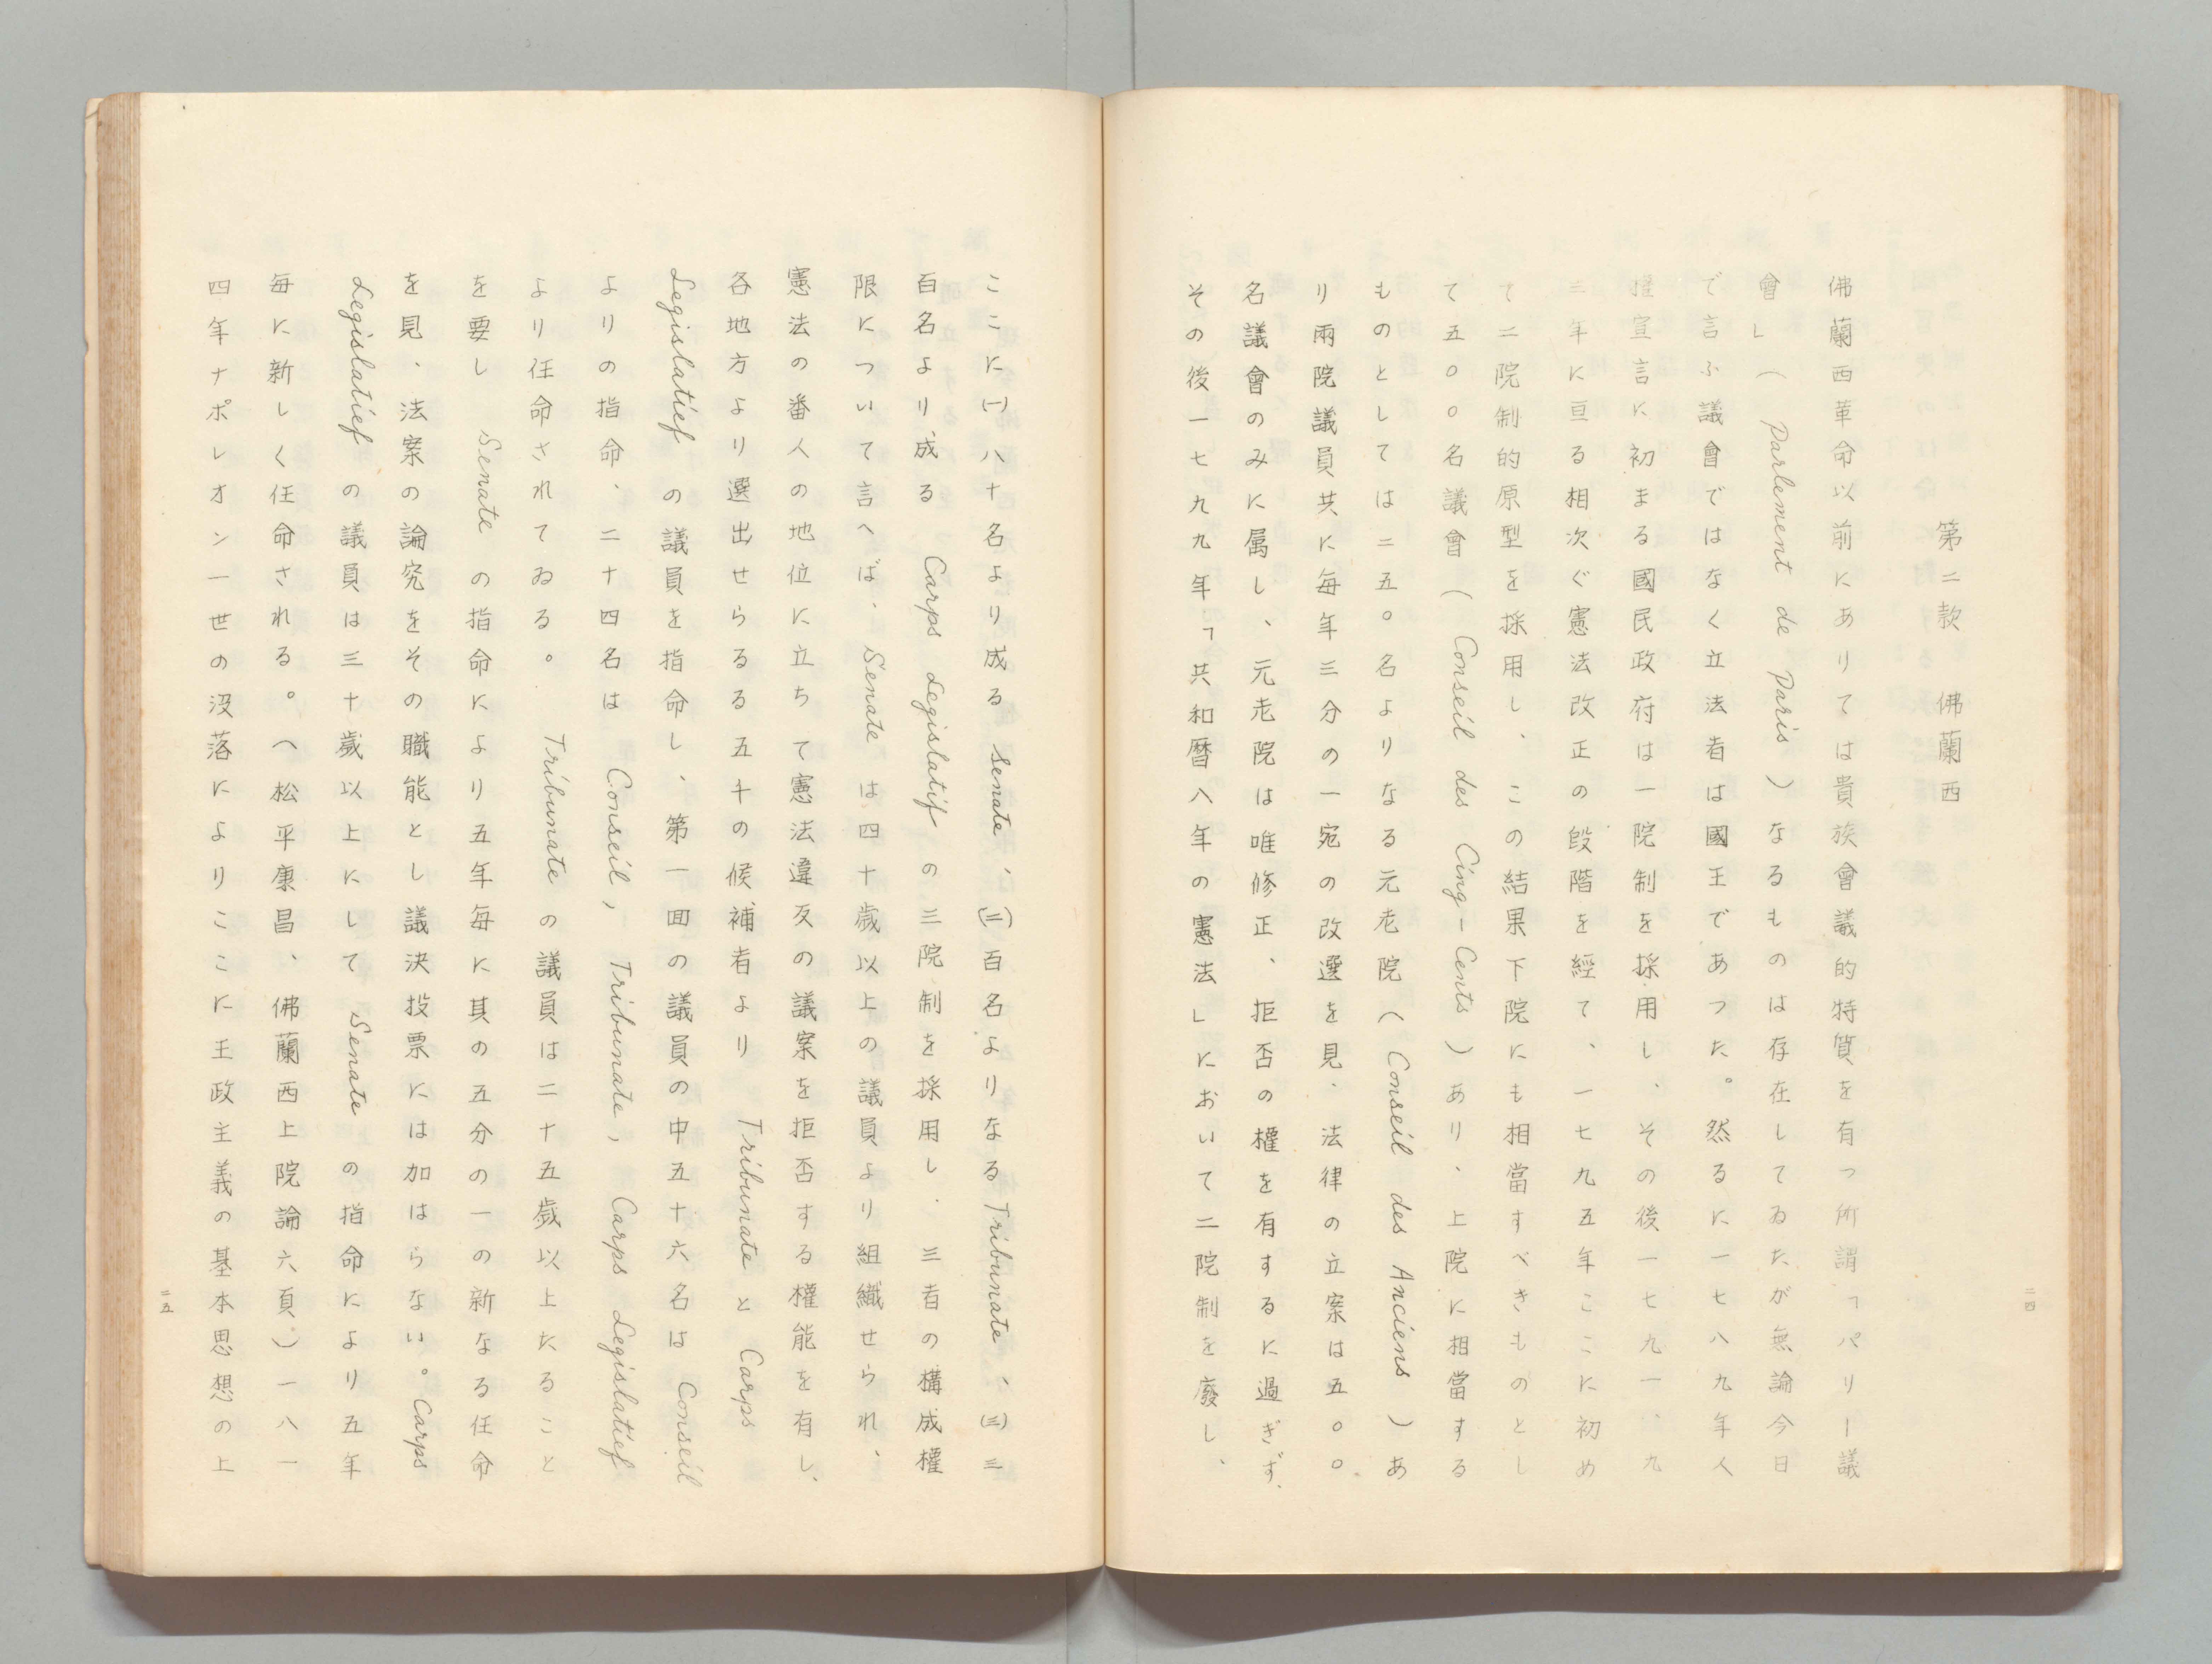 第二款　佛蘭西
佛蘭西革命以前にありては貴族會議的特質を有つ所謂「パリー議
會」（Parlement de Paris）なるものは存在してゐたが無論今日
で言ふ議會ではなく立法者は國王であつた。然るに一七八九年人
權宣言に初まる國民政府は一院制を採用し、その後一七九一、九
三年に亘る相次ぐ憲法改正の段階を經て、一七九五年ここに初め
て二院制的原型を採用し、この結果下院にも相當すべきものとし
て五〇〇名議會（Conseil des Cinq-Cents）あり、上院に相當する
ものとしては二五〇名よりなる元老院（Conseil des Anciens）あ
り兩院議員共に毎年三分の一宛の改選を見、法律の立案は五〇〇
名議會のみに属し、元老院は唯修正、拒否の權を有するに過ぎず、
その後一七九九年「共和暦八年の憲法」において二院制を廢し、
二四
ここに㈠八十名より成る Senate、㈡百名よりなる Tribunate、㈢三
百名より成る Carps Legislatif の三院制を採用し、三者の構成權
限について言へば、Senate は四十歳以上の議員より組織せられ、
憲法の番人の地位に立ちて憲法違反の議案を拒否する權能を有し、
各地方より選出せらるる五千の候補者より Tribunate と Carps
Legislatief の議員を指命し、第一回の議員の中五十六名は Conseil
よりの指命、二十四名は Conseil, Tribunate, Carps Legislatief
より任命されてゐる。Tribunate の議員は二十五歳以上たること
を要し Senate の指命により五年毎に其の五分の一の新なる任命
を見、法案の論究をその職能とし議決投票には加はらない。Carps
Legislatief の議員は三十歳以上にして Senate の指命により五年
毎に新しく任命される。（松平康昌、佛蘭西上院論六頁）一八一
四年ナポレオン一世の没落によりここに王政主義の基本思想の上
二五